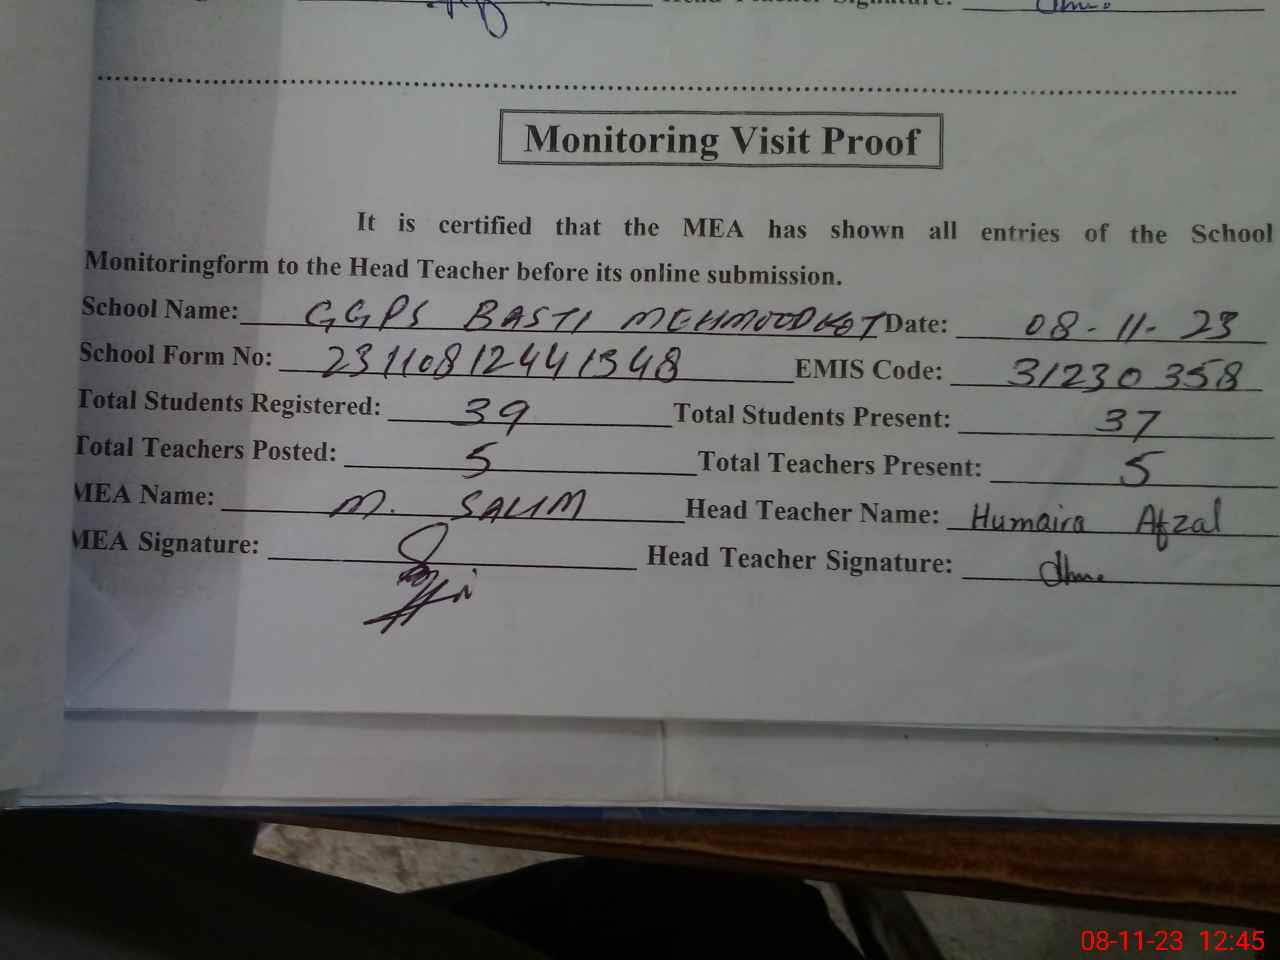 Monitoring Visit Proof
It is certified that the MEA has shown all entries of the School
Monitoringform to the Head Teacher before its online submission.
School Name: GGPS BASTI MEHMOODKOT Date: 08-11-23
School Form No: 231108124441348 EMIS Code: 31230358
Total Students Registered: 39 Total Students Present: 37
Total Teachers Posted: 5 Total Teachers Present: 5
MEA Name: M. SALIM Head Teacher Name: Humaira Afzal
MEA Signature: Head Teacher Signature:
08-11-23 12:45